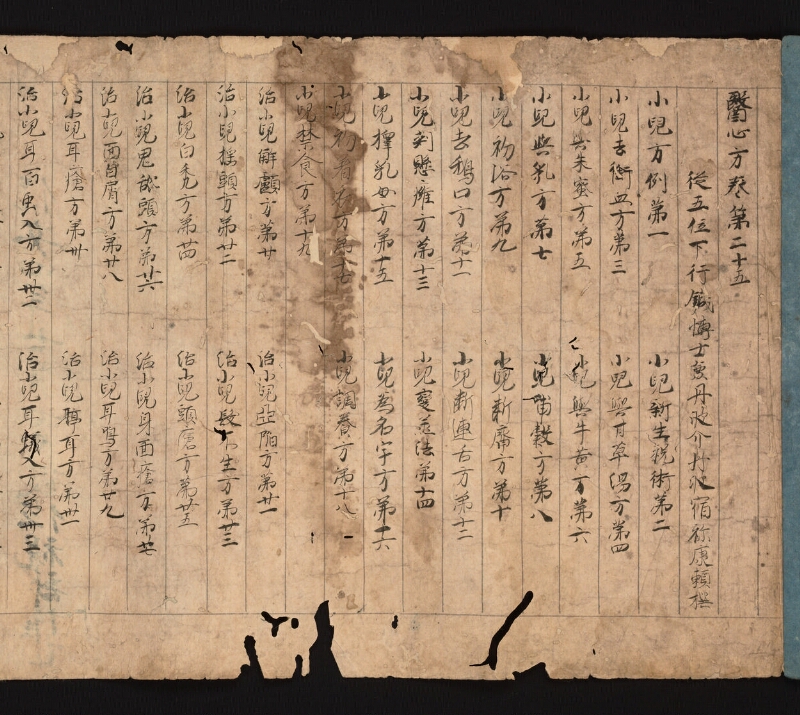 醫心方卷第二十五
從五位下行鍼博士兼丹波介丹波宿祢康頼撰
小兒方例第一 小兒新生祝術第二
小兒去銜血方第三 小兒與甘草湯方第四
小兒與朱蜜方第五 小兒與牛黄方第六
小兒與乳方第七 小兒哺穀方第八
小兒初浴方第九 小兒斷齊方第十
小兒去鵝口方第十一 小兒斷連舌方第十二
小兒刺懸癰方第十三 小兒變蒸法第十四
小兒擇乳母方第十五 小兒為名字方第十六
小兒初着衣方第十七 小兒調養方第十八
小兒禁食方第十九
治小兒解顱方第廿 治小兒囟陷方第廿一
治小兒摇頭方第廿二 治小兒髮不生方第廿三
治小兒白禿方第廿四 治小兒頭瘡方第廿五
治小兒鬼舐頭方第廿六 治小兒身面瘡方第廿七
治小兒面白屑方第廿八 治小兒耳鳴方第廿九
治小兒耳瘡方第卅 治小兒聤耳方第卅一
治小兒耳百虫入方第卅二 治小兒耳蟻入方第卅三